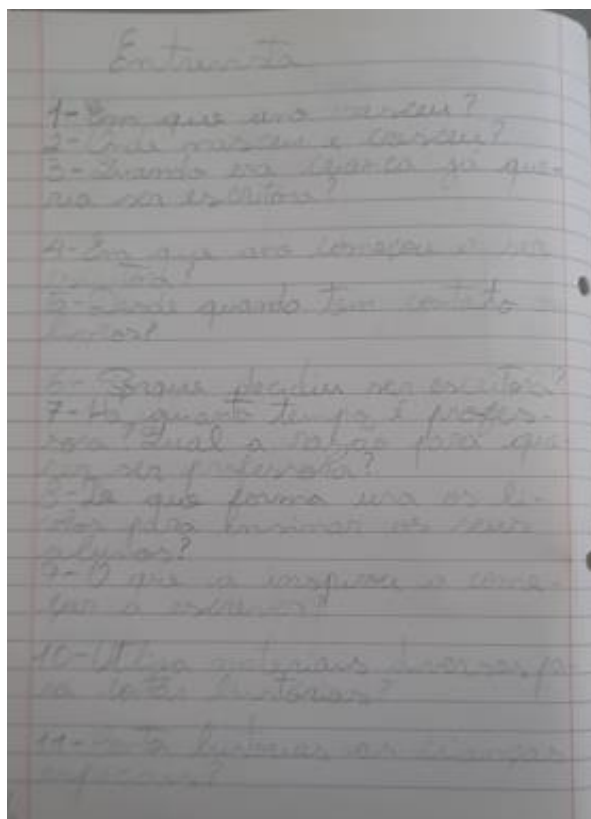 Entrevista
1- Em que ano nasceu?
2- Onde nasceu e cresceu?
3- Quando era criança já que-
ria ser escritora?
4- Em que ano começou a ser
escritora?
5- Desde quando tem contato
6- Porque decidiu ser escritora?
7- Há quanto tempo é profes-
sora? Qual a razão para que-
rer ser professora?
8- De que forma usa os li-
vros para ensinar os seus
alunos?
9- O que a inspirou a come-
çar a escrever?
10- Utiliza materiais diversos pa-
ra contar histórias?
11- histórias as crianças